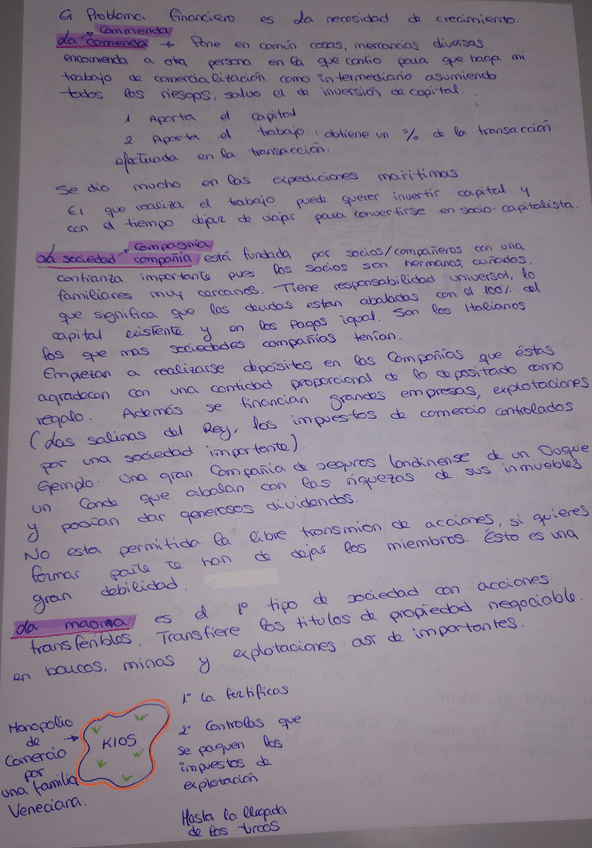 El Problema financiero es la necesidad de crecimiento.
Commenda
La comenda → Pone en común cosas, mercancias diversas
encomienda a otra persona en la que confio para que haga mi
trabajo de comercialización como intermediario asumiendo
todos los riesgos, salvo el de inversión de capital.
1 Aporta el capital
2 Aporta el trabajo: obtiene un % de la transacción
efectuada en la transacción.
Se dio mucho en las expediciones marítimas
El que realiza el trabajo puede querer invertir capital y
con el tiempo dejar de viajar para convertirse en socio-capitalista.
Compagnia
La sociedad compañía está fundada por socios/compañeros con una
confianza importante pues los socios son hermanos, cuñados,
familiares muy cercanos. Tiene responsabilidad universal, lo
que significa que las deudas estan abaladas con el 100% del
capital existente y en los pagos igual. Son los Italianos
los que mas sociedades compañías tenían.
Empiezan a realizarse depósitos en las Compañías que éstas
agradecen con una cantidad proporcional de lo depositado como
regalo. Además se financian grandes empresas, explotaciones
(Las salinas del Rey, los impuestos de comercio controlados
por una sociedad importante).
Ejemplo: Una gran Compañía de seguros londinense de un Duque
un Conde que abalan con las riquezas de sus inmuebles
y podían dar generosos dividendos.
No esta permitida la libre transmion de acciones, si quieres
formar parte te han de dejar los miembros. Esto es una
gran debilidad.
La maona es el 1º tipo de sociedad con acciones
transferibles. Transfiere los titulos de propiedad negociable.
en bancos, minas y explotaciones asi de importantes.
Monopolio
de
Comercio
por
una familia
Veneciana.
KIOS
1º La fortificas
2º Controlas que
se paguen los
impuestos de
explotación
Hasta la llegada
de los turcos